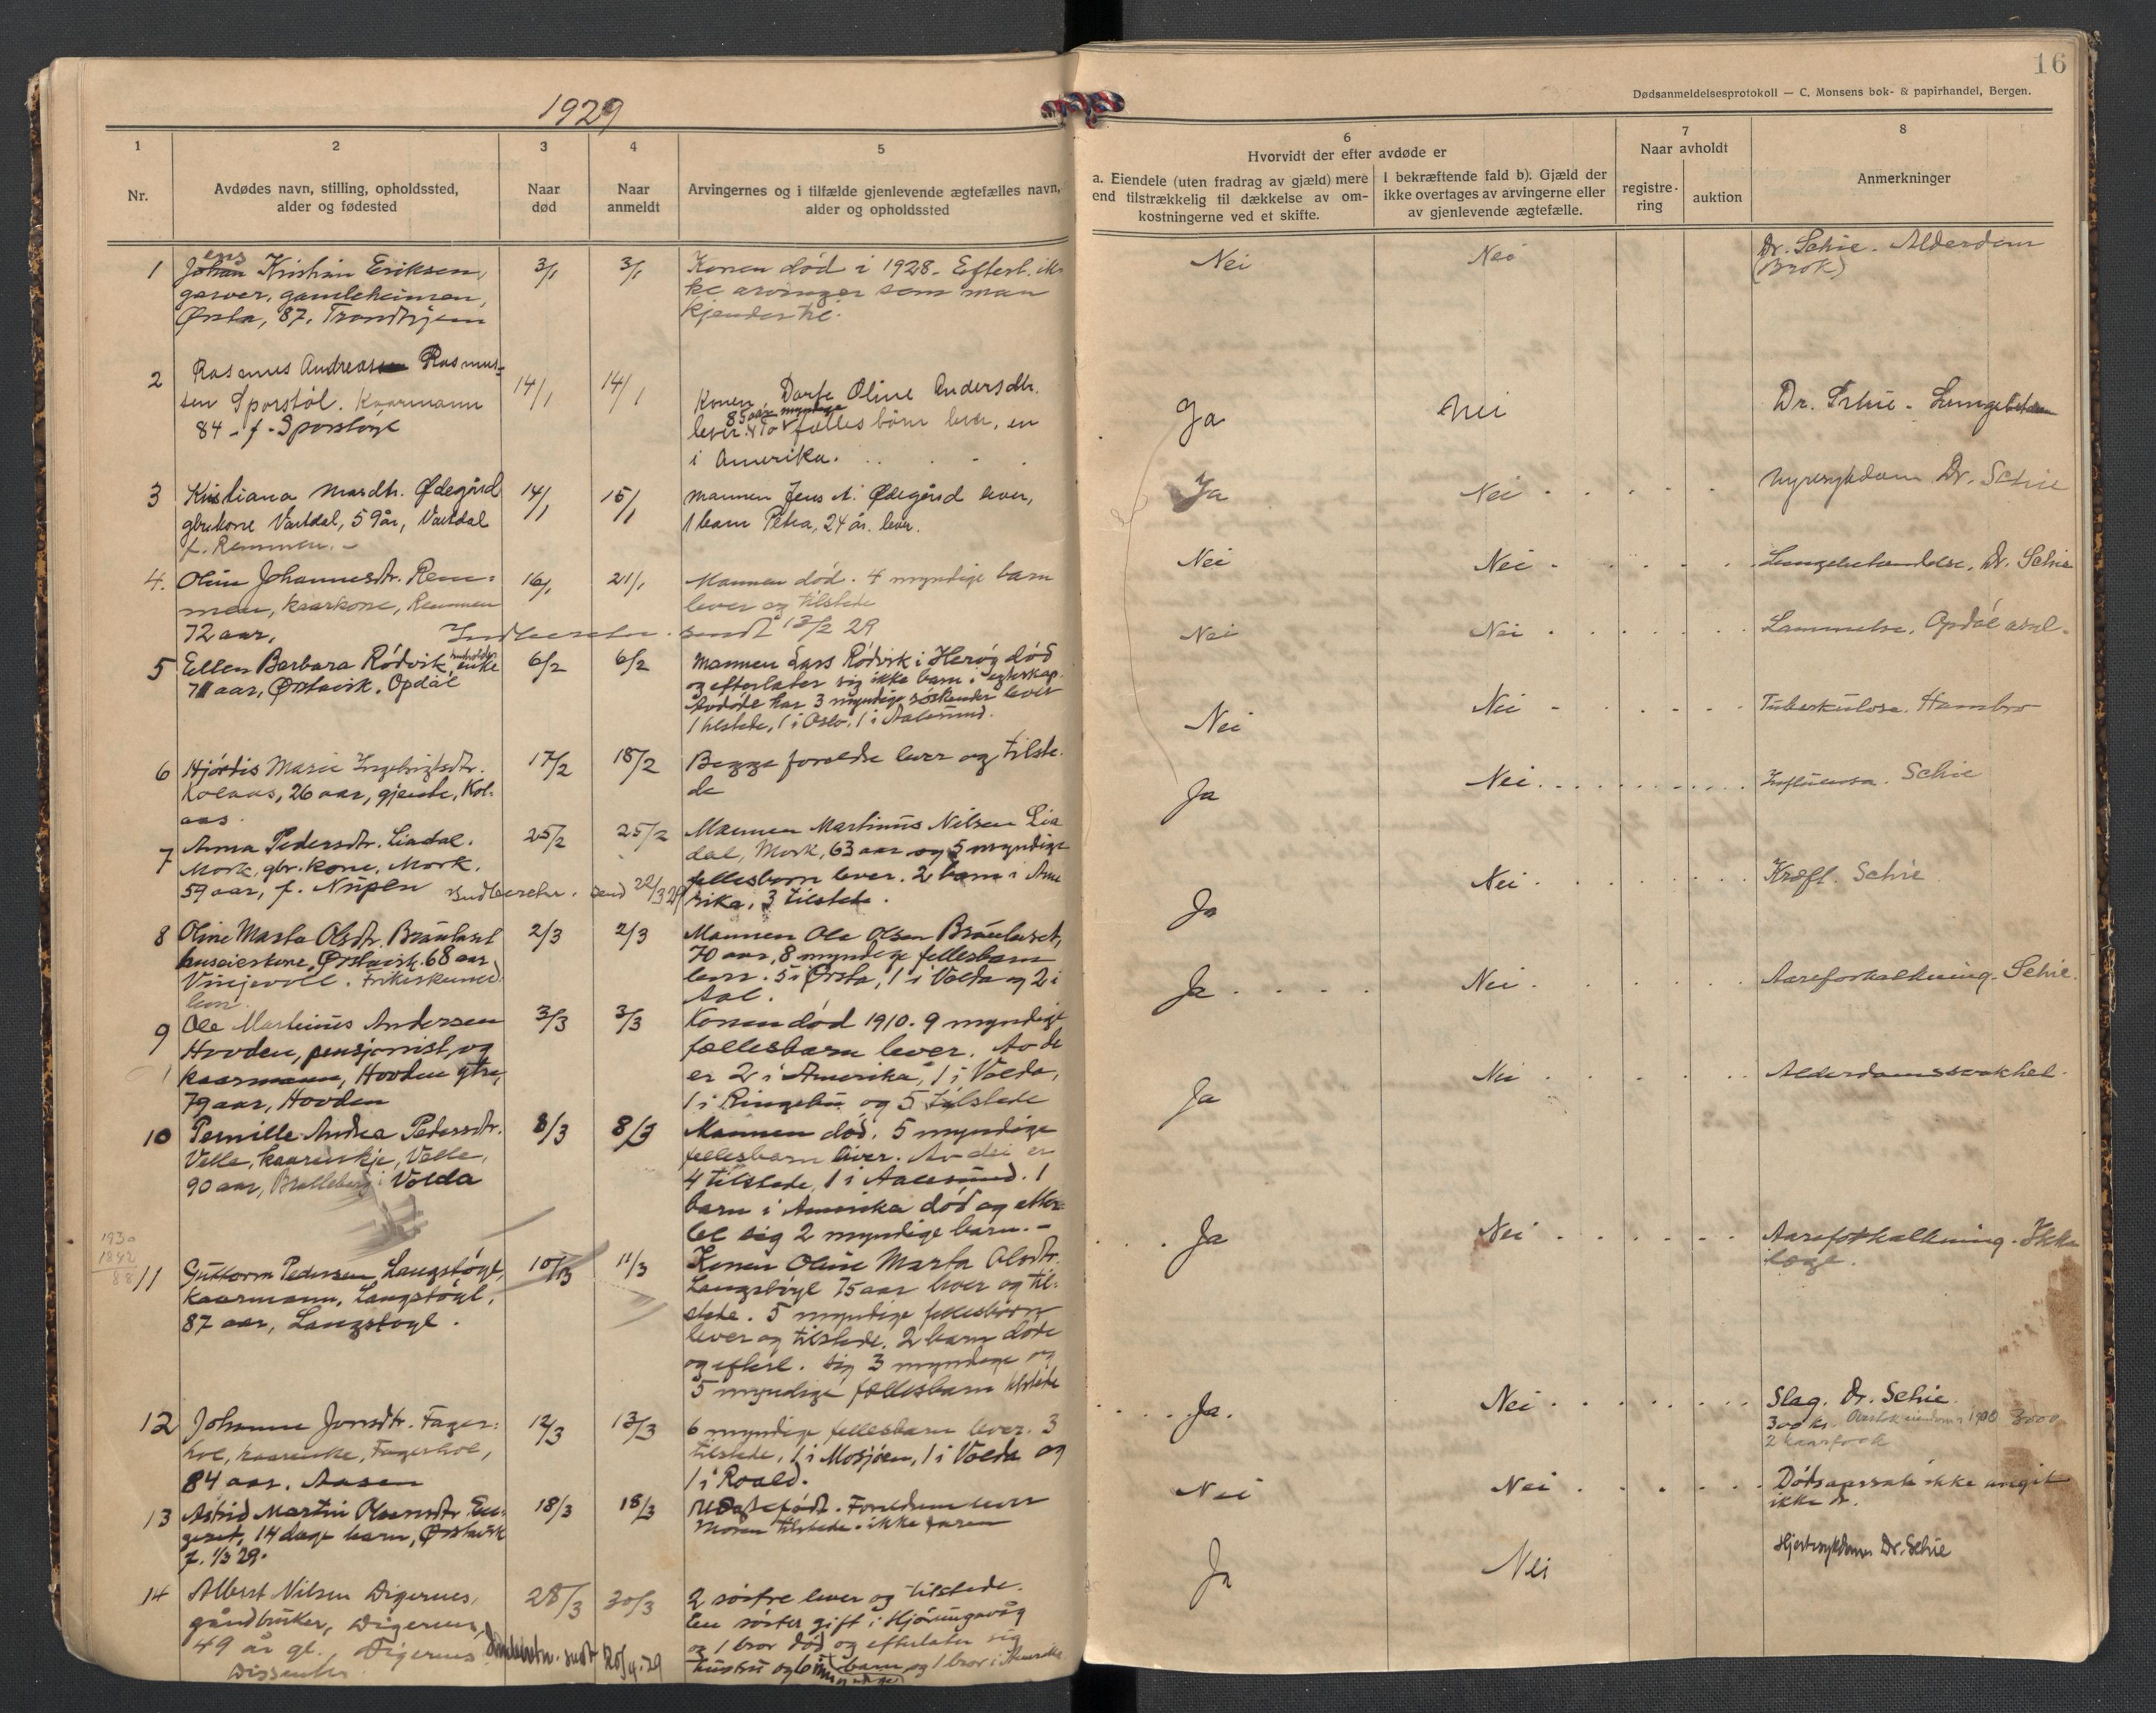 16
Dødsanmeldelsesprotokoll — C. Monsens bok- & papirhandel, Bergen.
1929
1 2 3 4 5
Nr.
Avdødes navn, stilling, opholdssted,
alder og fødested
Naar
død
Naar
anmeldt
Arvingernes og i tilfælde gjenlevende ægtefælles navn,
alder og opholdssted
6
Hvorvidt der efter avdøde er
a. Eiendele (uten fradrag av gjæld) mere
end tilstrækkelig til dækkelse av om-
kostningerne ved et skifte.
I bekræftende fald b). Gjæld der
ikke overtages av arvingerne eller
av gjenlevende ægtefælle.
7
Naar avholdt
registre-
ring
auktion
8
Anmerkninger
1
ens
Johan Kristian Eriksen,
garver, gamleheimen,
Ørsta, 87. Trondhjem
3/1
3/1
Konen død i 1928. Efterl. ik-
ke arvinger som man
kjender til.
Nei
Nei
Dr. Schie. Alderdom
(Brok)
2
Rasmus Andreassen Rasmus-
sen Sporstøl. Kaarmann
84 - f. Sporstøyl
14/1
14/1
Konen, Dorte Oline Andersdtr.
85 aar myndige
lever. To fælles børn lever, en
i Amerika.
Ja
Nei
Dr. Schie -
3
Kristiana Mardtr. Ødegård
gbrkone Vartdal, 59 år, Vartdal
f. Remmen. -
14/1
15/1
Mannen Jens A. Ødegård lever,
1 barn Petra, 24 år. lever.
Ja
Nei
Nyresykdom Dr. Schie
4.
Oline Johannesdtr. Rem-
men, kaarkone, Remmen
72 aar,
16/1
21/1
Mannen død. 4 myndige barn
lever og tilstede
Indberetn. sendt 13/2 29
Nei
Nei
Lungebetændelse, Dr. Schie
5
Ellen Barbara Rødvik, enke
71 aar, Ørstavik. Opdal
6/2
6/2
Mannen Lars Rødvik i Herøy død
og efterlater sig ikke barn i egteskap.
Avdøde har 3 myndige søskender lever
1 tilstede, 1 i Oslo, 1 i Aalesund.
Nei
Nei
Lammelse, Opdøl asyl.
6
Hjørdis Marie Ingebrigtsdtr.
Kolaas, 26 aar, gjente, Kol-
aas.
17/2
18/2
Begge foreldre lever og tilste-
de
Nei
Nei
Tuberkulose. Hambro
7
Anna Pedersdtr. Liadal.
Mork, gbr. kone, Mork.
59 aar, f. Nupen
25/2
25/2
Mannen Martinus Nilsen Lia
dal, Mork, 63 aar og 5 myndige
fellesbarn lever. 2 barn i Ame
rika, 3 tilstede.
Indberetn. send 22/3 29
Ja
Nei
Influensa. Schie
8
Oline Marta Olsdtr. Brautaset
huseierkone, Ørstavik. 68 aar
Vinjevoll.
2/3
2/3
Mannen Ole Olsen Brautaset,
70 aar, 8 myndige fellesbarn
lever. 5 i Ørsta, 1 i Volda og 2 i
Aal.
Ja
Nei
Kræft. Schie
9
Ole Martinus Andersen
Hovden, pensjonist, og
kaarmann, Hovden ytre,
79 aar, Hovden
3/3
3/3
Konen død 1910. 9 myndige
fællesbarn lever. Av de
er 2 i Amerika, 1 i Volda,
1 i Ringebu og 5 tilstede
Ja
Nei
Aareforkalkning. Schie.
10
Pernille Andrea Pedersdtr.
Velle, kaarenkje, Velle,
90 aar, i Volda
8/3
8/3
Mannen død. 5 myndige
fellesbarn lever. Av dei er
4 tilstede, 1 i Aalesund. 1
barn i Amerika død og etter-
let sig 2 myndige barn. -
Ja
Nei
Alderdomssvakhet.
1930
1842
88
11
Guttorm Pedersen Langstøyl,
kaarmann, Langstøyl,
87 aar, Langstøyl.
10/3
11/3
Konen Oline Marta Olsdtr.
Langstøyl 75 aar lever og til-
stede. 5 myndige fellesbørn
lever og tilstede. 2 barn døde
og efterl. sig 3 myndige og
5 myndige fællesbarn tilstede
Ja
Nei
Aareforkalkning. Ikke
læge.
12
Johanne Jonsdtr. Fager-
hol, kaarenke, Fagerhol,
84 aar. Aasen
12/3
13/3
6 myndige fellesbarn lever. 3
tilstede, 1 i Mosjøen, 1 i Volda og
1 i Roald.
Ja.
Nei
Slag. Dr. Schie.
300 kr. 3000
2 kaarfolk
13
Astrid Martin Olsensdtr.
14 dage barn, Ørstavik
f. 1/3 29.
18/3
18/3
Foreldrene lever
Moren tilstede. ikke faren
Nei
Nei
Dødsaarsak ikke angit
ikke dr.
14
Albert Nilsen Digernes,
gårdbruker, Digernes,
49 år gl. Digernes
Dissenter
28/3
30/3
2 søstre lever og tilstede.
En søster gift i Hjørungavåg
og 1 bror død og efterlater sig
hustru og barn og 1 bror i Amerika
myndige
Indberetn. sendt 20/4.29
Ja
Nei
Hjertesykdom Dr. Schie